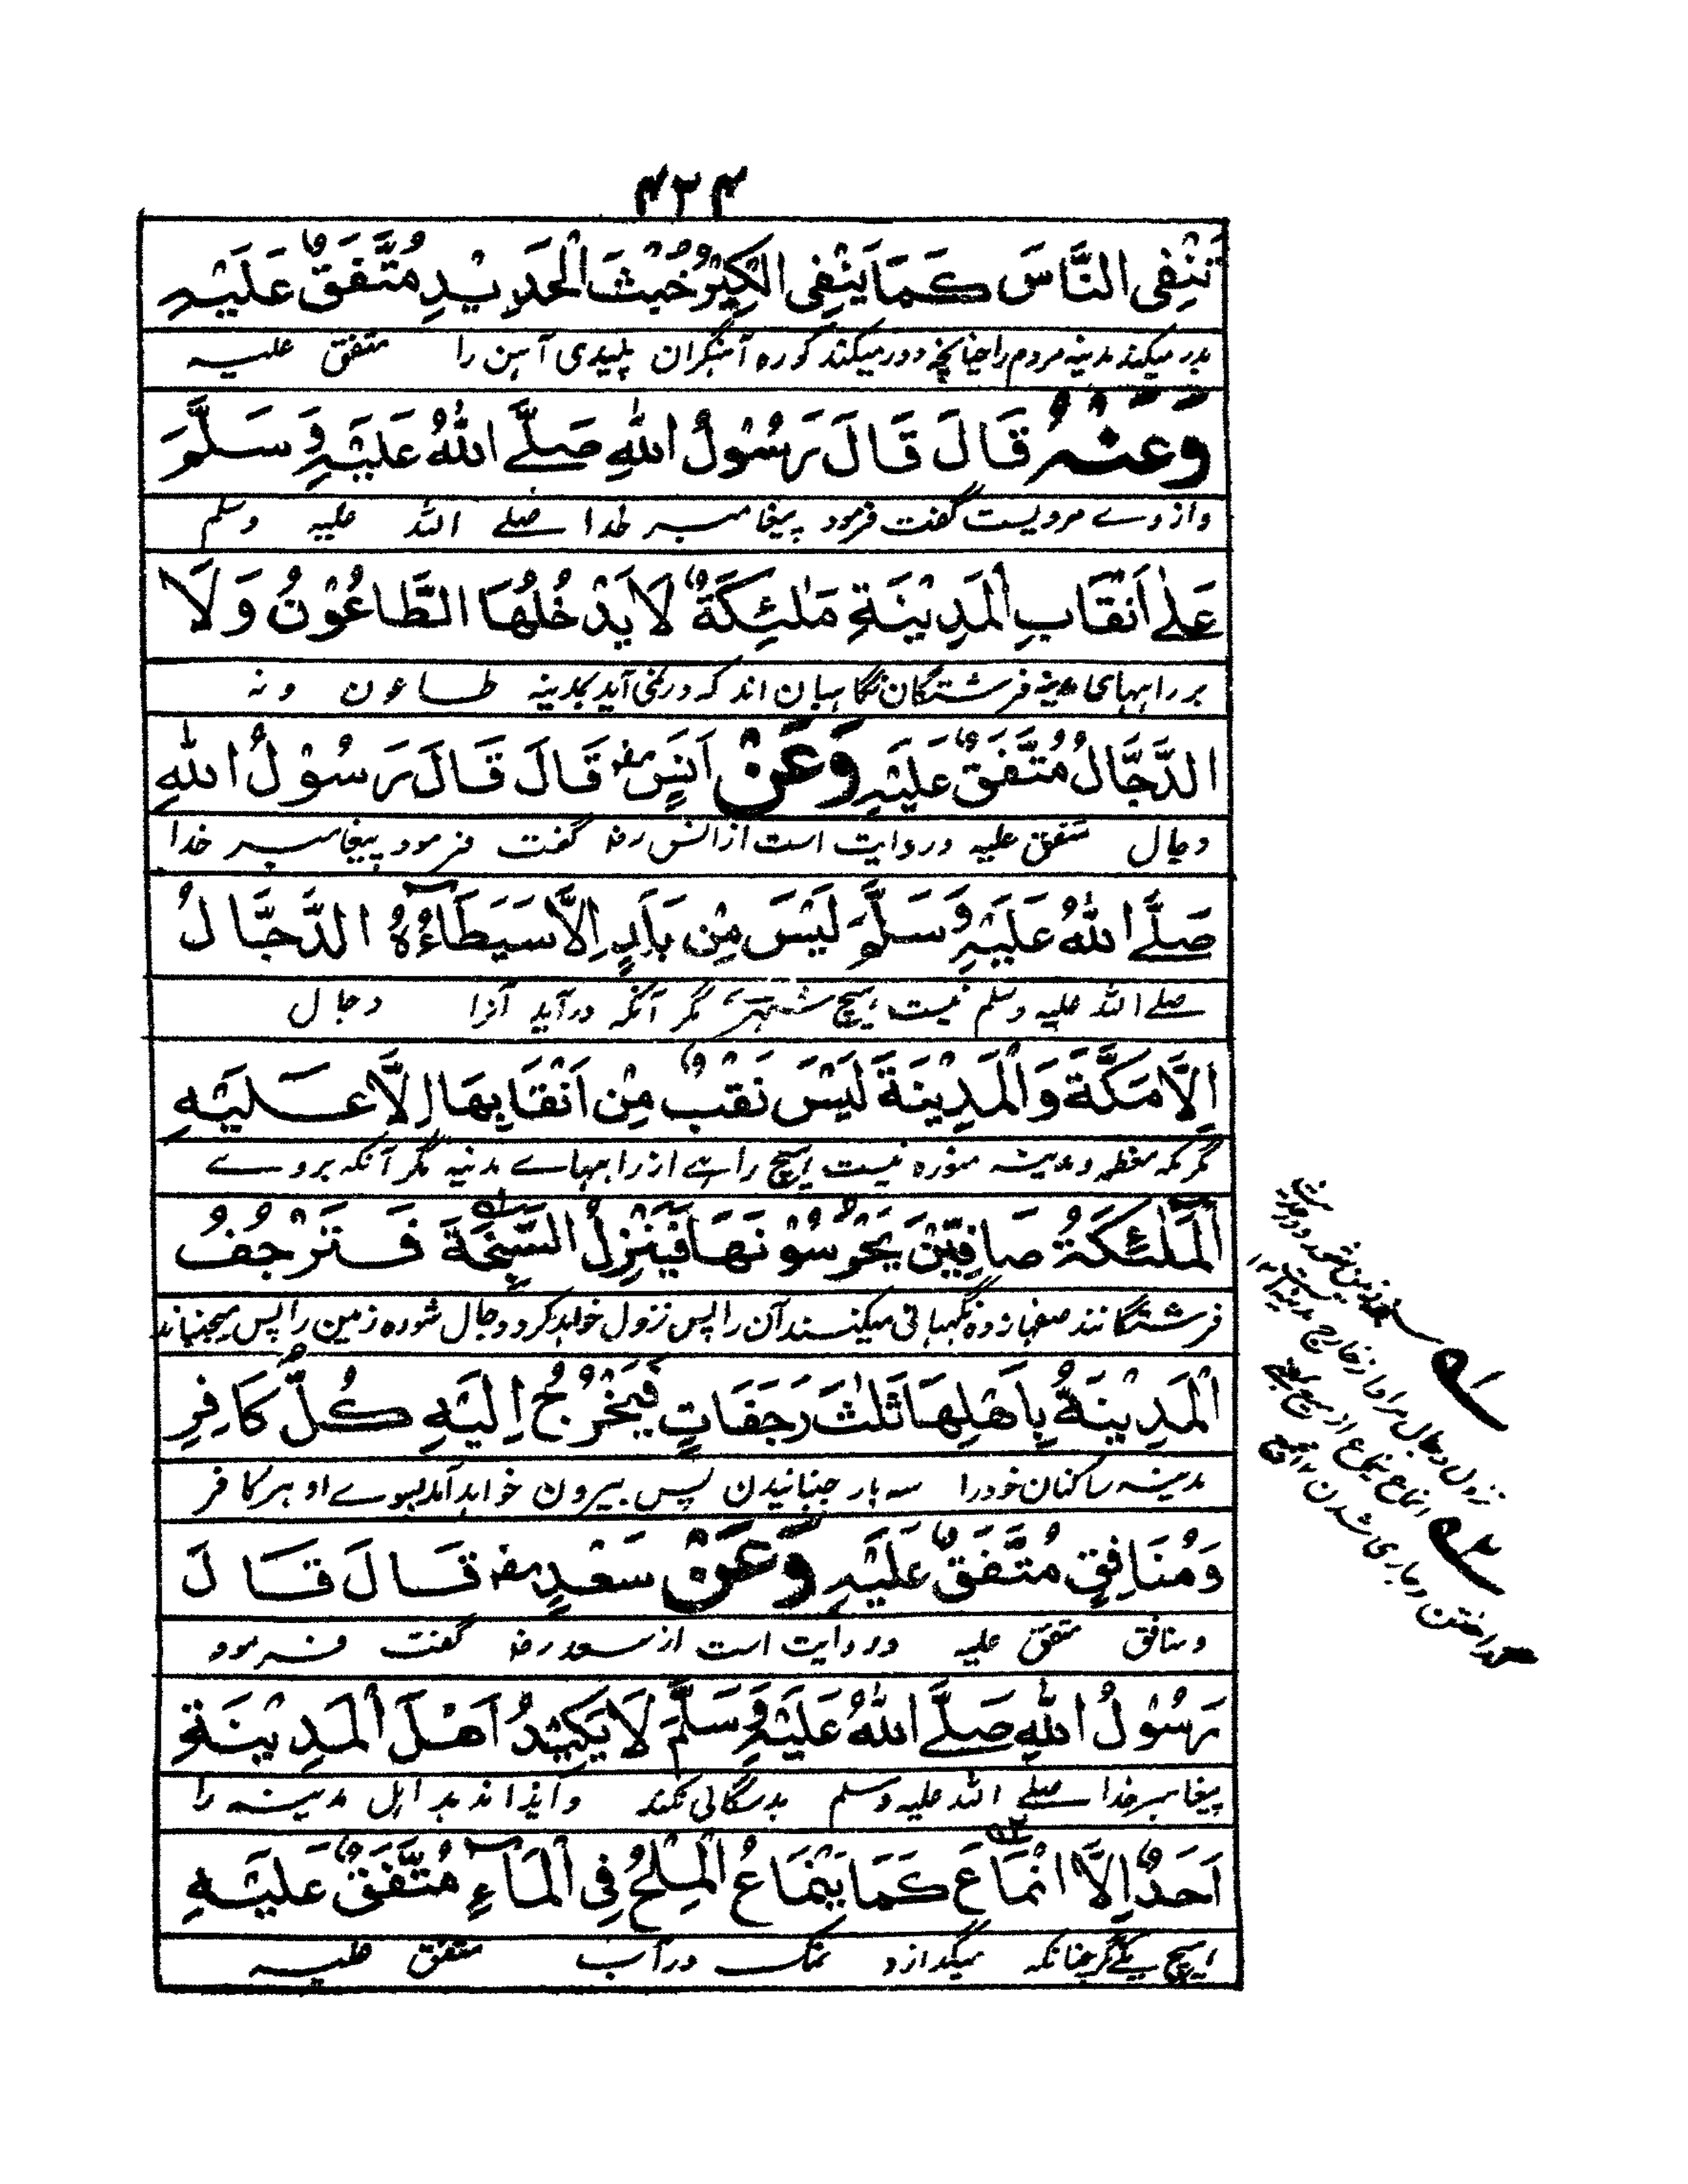 ۴۳۴
تَنْفِی النَّاسَ کَمَا یَنْفِی الْکِیْرُ خُبْثَ الْحَدِیْدِ مُتَّفَقٌ عَلَیْہِ
بدر میکند مدینہ مردم را چنانچہ دور میکند کورہ آہنگران پلیدی آہن را متفق علیہ
وَعَنْہُ قَالَ قَالَ رَسُوْلُ اللّٰہِ صَلَّے اللّٰہُ عَلَیْہِ وَسَلَّمَ
و از وے مرویست گفت فرمود پیغامبر خدا صلے اللہ علیہ وسلم
عَلٰے اَنْقَابِ الْمَدِیْنَۃِ مَلٰئِکَۃٌ لَا یَدْخُلُھَا الطَّاعُوْنُ وَلَا
بر راہہای مدینہ فرشتگان نگاہبان اند کہ در نمی آید بمدینہ طاعون و نہ
الدَّجَّالُ مُتَّفَقٌ عَلَیْہِ وَعَنْ اَنَسٍ رض قَالَ قَالَ رَسُوْلُ اللّٰہِ
دجال متفق علیہ و روایت است از انس رض گفت فرمود پیغامبر خدا
صَلَّے اللّٰہُ عَلَیْہِ وَسَلَّمَ لَیْسَ مِنْ بَلَدٍ اِلَّا سَیَطَاءُہُ الدَّجَّالُ
صلے اللہ علیہ وسلم نیست ہیچ شہرے مگر آنکہ در آید آنرا دجال
اِلَّا مَکَّۃَ وَالْمَدِیْنَۃَ لَیْسَ نَقْبٌ مِنْ اَنْقَابِھَا اِلَّا عَلَیْہِ
مگر مکہ معظمہ و مدینہ منورہ نیست ہیچ راہے از راہہاے مدنیہ مگر آنکہ بروے
الْمَلٰئِکَۃُ صَافِّیْنَ یَحْرُسُوْنَھَا فَیَنْزِلُ السَّبِخَۃَ فَتَرْجُفُ
فرشتگانند صفہا زدہ نگہبانی میکنند آن را پس نزول خواہد کرد دجال شورہ زمین را پس بجنباند
الْمَدِیْنَۃُ بِاَھْلِھَا ثَلٰثَ رَجَفَاتٍ فَیَخْرُجُ اِلَیْہِ کُلُّ کَافِرٍ
مدینہ ساکنان خود را سہ بار جنبانیدن پس بیرون خواہد آمد بسوے او ہر کافر
وَمُنَافِقٍ مُتَّفَقٌ عَلَیْہِ وَعَنْ سَعْدٍ رض قَالَ قَالَ
و منافق متفق علیہ و روایت است از سعد رض گفت فرمود
رَسُوْلُ اللّٰہِ صَلَّے اللّٰہُ عَلَیْہِ وَسَلَّمَ لَا یَکِیْدُ اَھْلَ الْمَدِیْنَۃِ
پیغامبر خدا صلے اللہ علیہ وسلم بدسگالی نکند و ایذا ندہد اہل مدینہ را
اَحَدٌ اِلَّا انْمَاعَ کَمَا یَنْمَاعُ الْمِلْحُ فِی الْمَآءِ مُتَّفَقٌ عَلَیْہِ
ہیچ یکے مگر چنانکہ میگدازد نمک در آب متفق علیہ
نزول دجال مراد از خارج مدینہ است ۱۲
انماع ینماع از
و جاری شدن